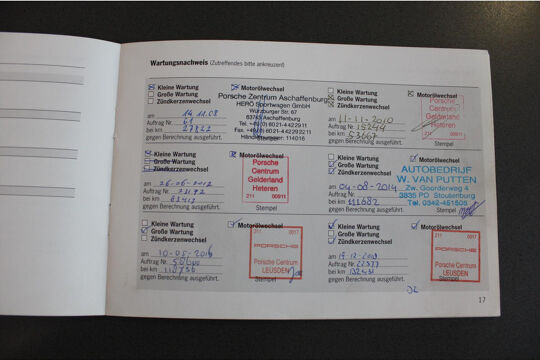 Wartungsnachweis (Zutreffendes bitte ankreuzen!)
Kleine Wartung Motorölwechsel
Große Wartung
Zündkerzenwechsel
am 14.11.08
Auftrag Nr.
bei km 27842
gegen Berechnung ausgeführt.
Porsche Zentrum Aschaffenburg
HERO Sportwagen GmbH
Würzburger Str. 67
63743 Aschaffenburg
Tel. +49(0) 6021-4422911
Fax. +49(0) 6021-442292 11
Händlernummer: 114016
Kleine Wartung Motorölwechsel
Große Wartung
Zündkerzenwechsel
am 11-11-2010
Auftrag Nr. 15244
bei km 53667
gegen Berechnung ausgeführt.
Stempel
Porsche
Centrum
Gelderland
Heteren
211 00911
Kleine Wartung Motorölwechsel
Große Wartung
Zündkerzenwechsel
am 26-06-2012
Auftrag Nr.
bei km
gegen Berechnung ausgeführt.
Stempel
Porsche
Centrum
Gelderland
Heteren
211 00911
Kleine Wartung Motorölwechsel
Große Wartung
Zündkerzenwechsel
am 04-08-2014
Auftrag Nr.
bei km 111682
gegen Berechnung ausgeführt.
Stempel
AUTOBEDRIJF
W. VAN PUTTEN
Zw. Goorderweg 4
3835 PD Stoutenburg
Tel. 0342-451505
Kleine Wartung Motorölwechsel
Große Wartung
Zündkerzenwechsel
am 10-05-2016
Auftrag Nr.
bei km
gegen Berechnung ausgeführt.
Stempel
211 0017
PORSCHE
Porsche Centrum
LEUSDEN
Kleine Wartung Motorölwechsel
Große Wartung
Zündkerzenwechsel
am
Auftrag Nr.
bei km 132431
gegen Berechnung ausgeführt.
Stempel
211 0017
PORSCHE
Porsche Centrum
LEUSDEN
17